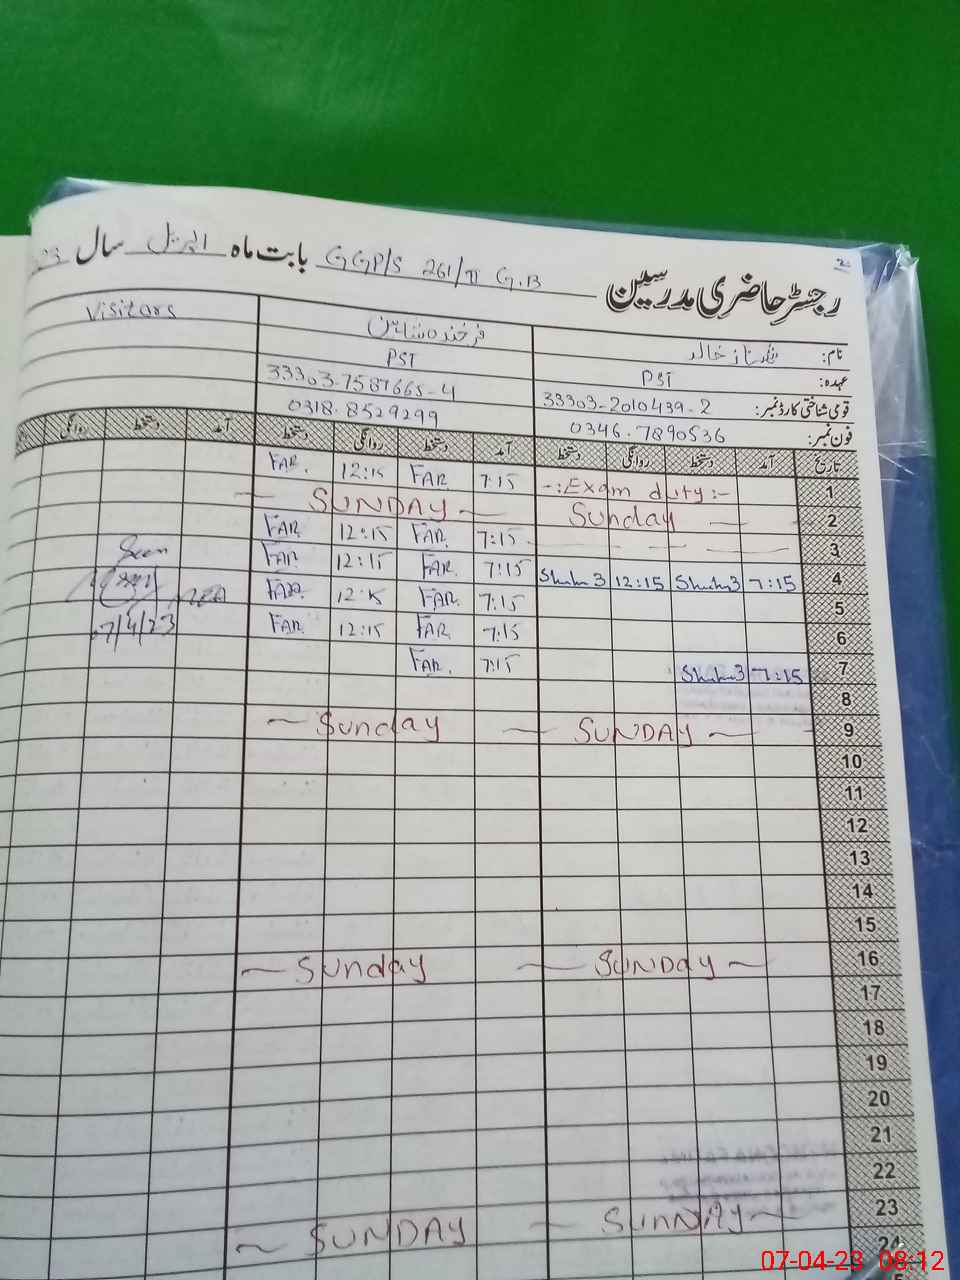 2
رجسٹر حاضری مدرسین GGP/S 261/II G.B بابت ماہ اپریل سال 23
نام: خالد فرخندہ شاہین Visitors
عہدہ: PST PST
قومی شناختی کارڈ نمبر: 33303-2010439-2 33303-7587665-4
فون نمبر: 0346-7890536 0318-8529299
تاریخ آمد دستخط روانگی دستخط آمد دستخط روانگی دستخط آمد دستخط روانگی
1 -:Exam duty:- 7:15 FAR 12:15 FAR.
2 Sunday SUNDAY
3 7:15 FAR. 12:15 FAR
4 7:15 12:15 7:15 FAR. 12:15 FAR
5 7:15 FAR. 12:15 FAR.
6 7:15 FAR 12:15 FAR.
7 7:15 7:15 FAR.
Seen
7/4/23
8
9 SUNDAY Sunday
10
11
12
13
14
15
16 SUNDAY Sunday
17
18
19
20
21
22
23 SUNDAY SUNDAY
24
07-04-23 08:12